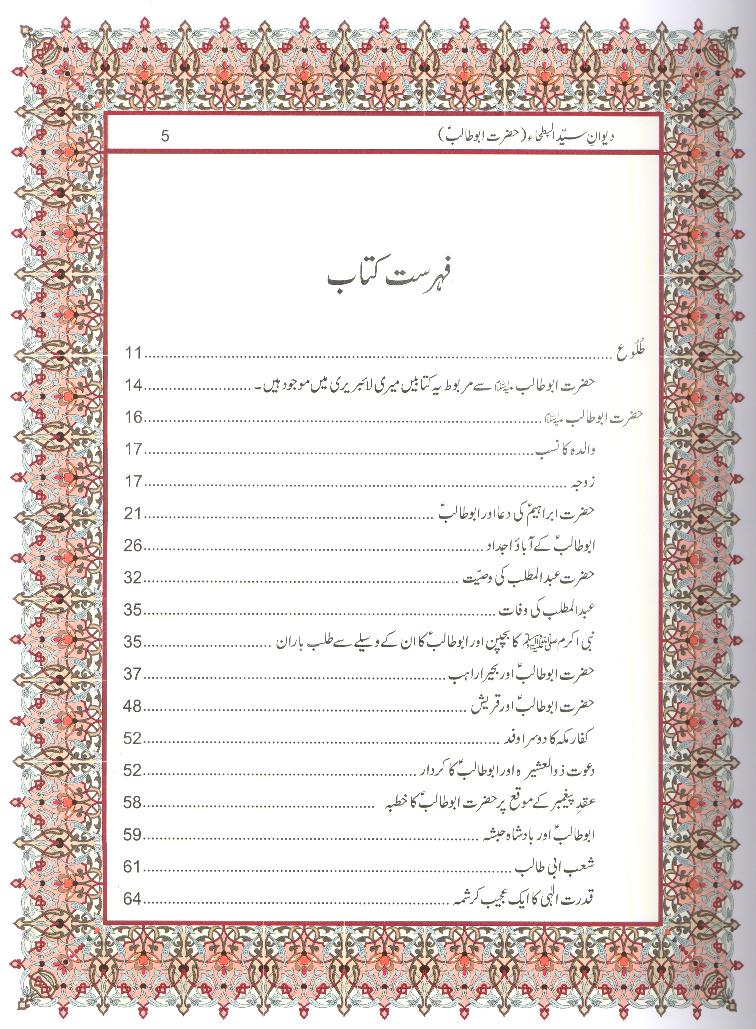 دیوانِ سیّد البطحاء (حضرت ابوطالبؑ) 5
فہرست کتاب
طُلُوع ........ 11
حضرت ابوطالب علیہ السلام سے مربوط یہ کتابیں میری لائبریری میں موجود ہیں۔ ........ 14
حضرت ابوطالب علیہ السلام ........ 16
والدہ کا نسب ........ 17
زوجہ ........ 17
حضرت ابراہیمؑ کی دعا اور ابوطالبؑ ........ 21
ابوطالبؑ کے آباؤ اجداد ........ 26
حضرت عبدالمطلب کی وصیّت ........ 32
عبدالمطلب کی وفات ........ 35
نبی اکرم ﷺ کا بچپن اور ابوطالبؑ کا ان کے وسیلے سے طلب باران ........ 35
حضرت ابوطالبؑ اور بحیرا راہب ........ 37
حضرت ابوطالبؑ اور قریش ........ 48
کفار مکہ کا دوسرا وفد ........ 52
دعوت ذوالعشیرہ اور ابوطالبؑ کا کردار ........ 52
عقدِ پیغمبر کے موقع پر حضرت ابوطالبؑ کا خطبہ ........ 58
ابوطالبؑ اور بادشاہ حبشہ ........ 59
شعب ابی طالب ........ 61
قدرت الٰہی کا ایک عجیب کرشمہ ........ 64